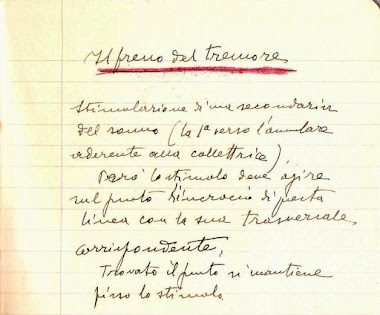 Il freno del tremore
Stimolazione di una secondaria
del sonno (la 1ª verso l'anulare
aderente alla collettrice),
Però lo stimolo deve agire
sul punto d'incrocio di questa
linea con la sua trasversale
corrispondente,
Trovato il punto si mantiene
fisso lo stimolo.